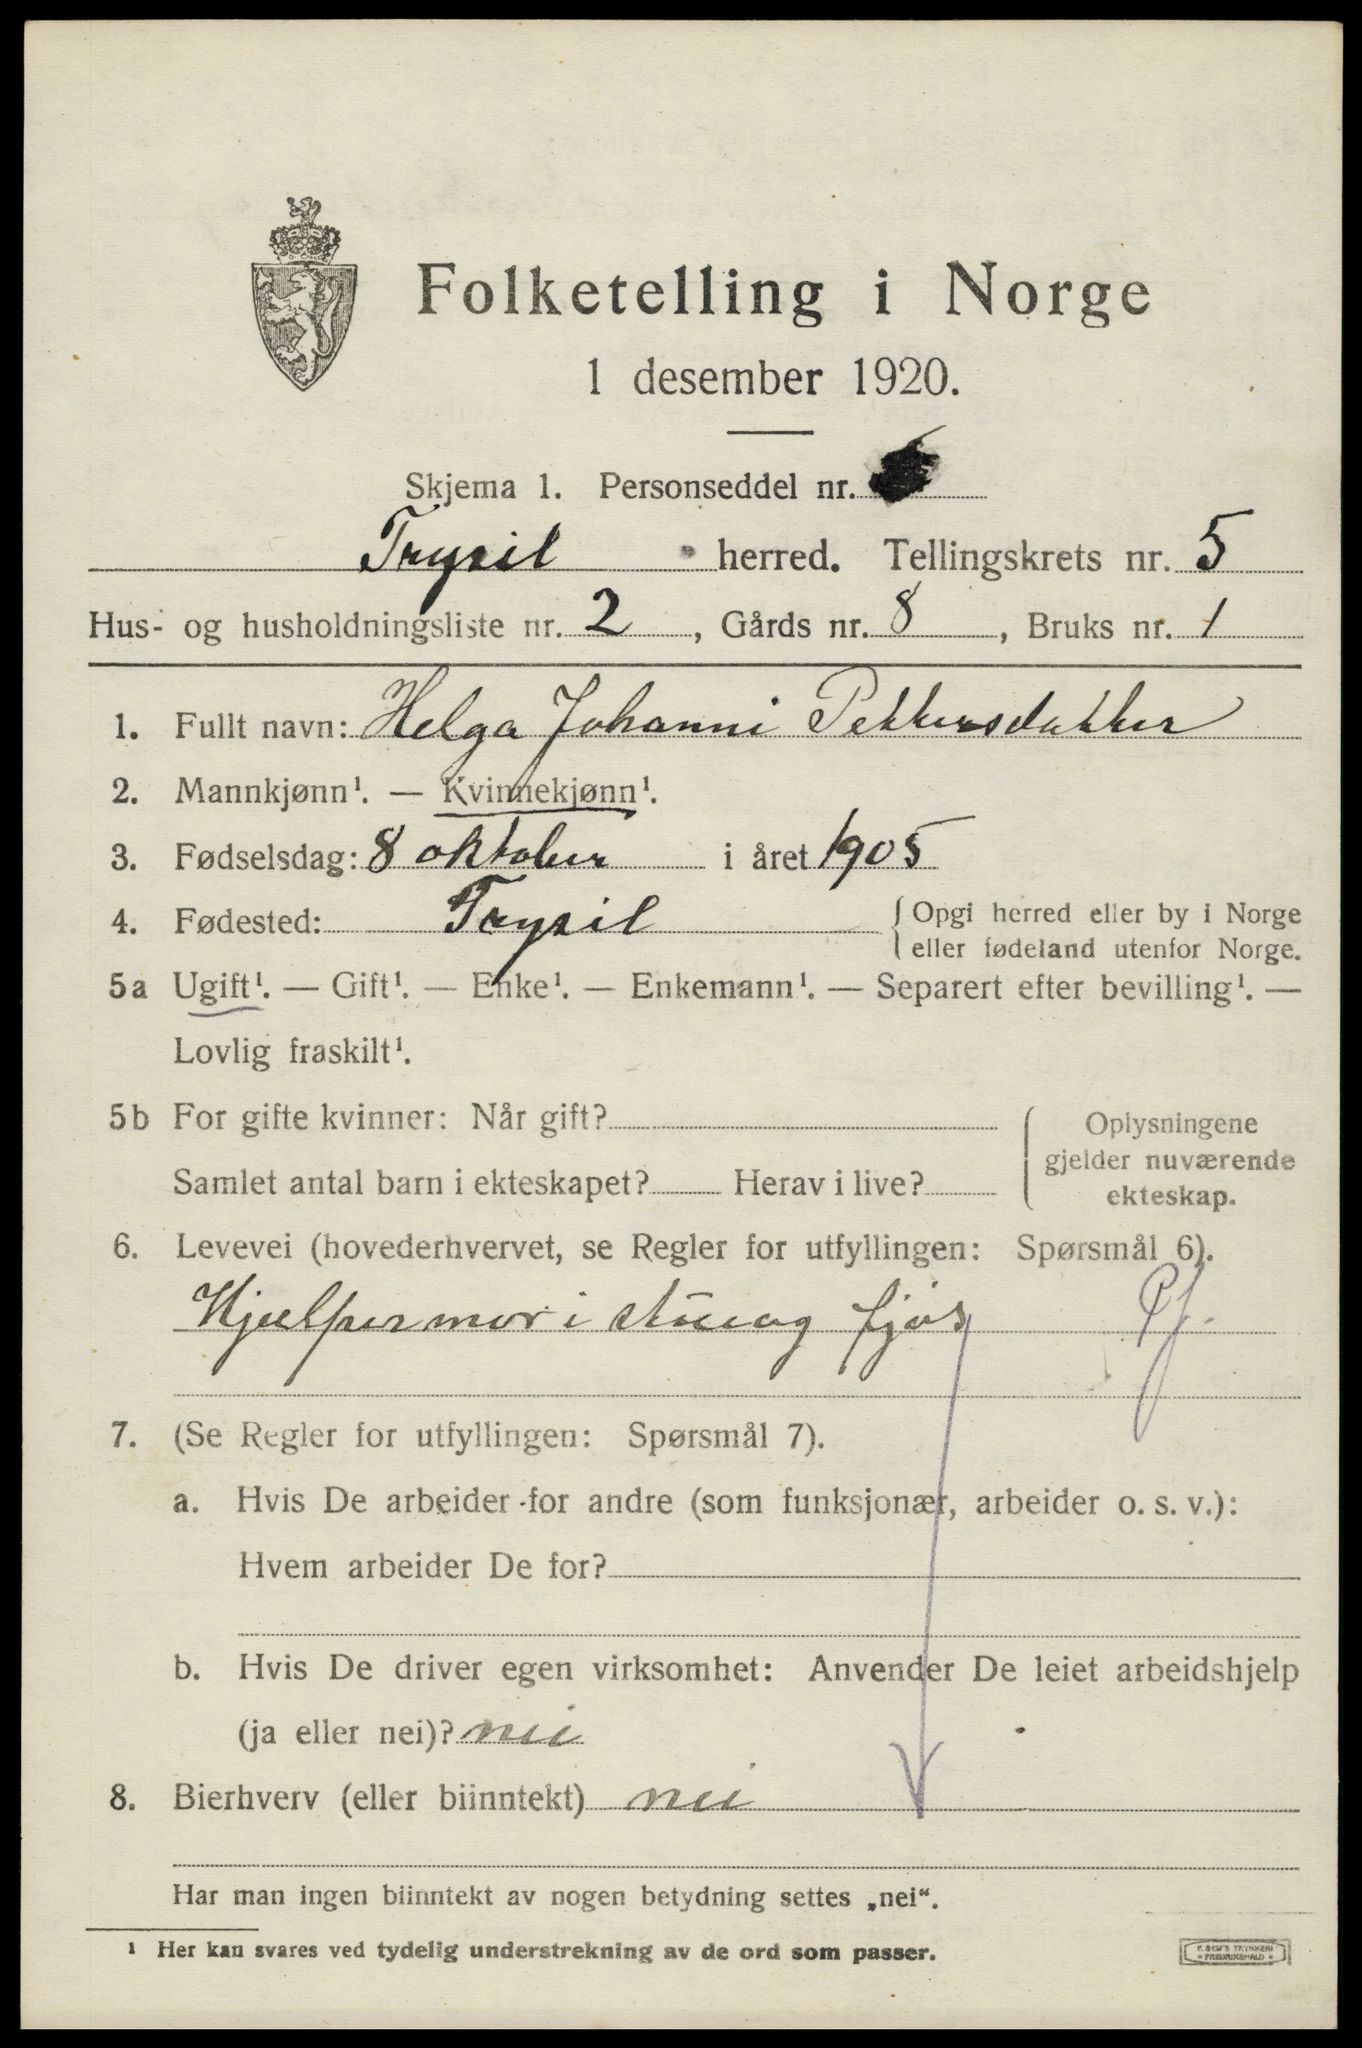 Folketelling i Norge
1 desember 1920.
Skjema 1. Personseddel nr.
Trysil herred. Tellingskrets nr. 5
Hus- og husholdningsliste nr. 2, Gårds nr. 8, Bruks nr. 1
1. Fullt navn: Helga Johanni Pettersdatter
2. Mannkjønn¹. — Kvinnekjønn¹.
3. Fødselsdag: 8 oktober i året 1905
4. Fødested: Trysil { Opgi herred eller by i Norge
eller fødeland utenfor Norge.
5a Ugift¹. — Gift¹. — Enke¹. — Enkemann¹. — Separert efter bevilling¹. —
Lovlig fraskilt¹.
5b For gifte kvinner: Når gift? { Oplysningene
gjelder nuværende
Samlet antal barn i ekteskapet? Herav i live?
ekteskap.
6. Levevei (hovederhvervet, se Regler for utfyllingen: Spørsmål 6).
Hjælper mor i stue og fjøs Pf.
7. (Se Regler for utfyllingen: Spørsmål 7).
a. Hvis De arbeider for andre (som funksjonær, arbeider o. s. v.):
Hvem arbeider De for?
b. Hvis De driver egen virksomhet: Anvender De leiet arbeidshjelp
(ja eller nei)? nei
8. Bierhverv (eller biinntekt) nei
Har man ingen biinntekt av nogen betydning settes „nei“.
¹ Her kan svares ved tydelig understrekning av de ord som passer.
E. SEM'S TRYKKERI
FREDRIKSHALD